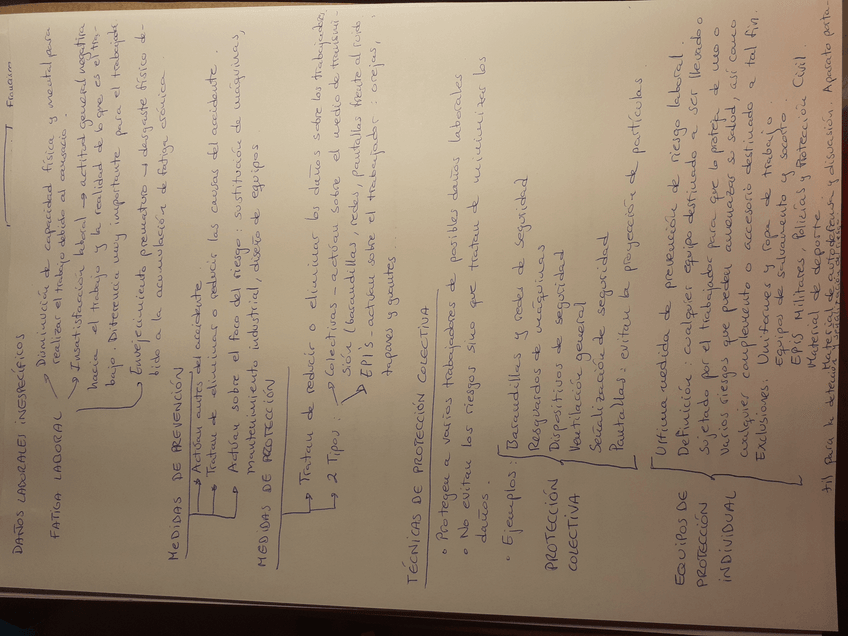 DAÑOS LABORALES INESPECÍFICOS
FATIGA LABORAL → Disminución de capacidad física y mental para
realizar el trabajo debido al cansancio.
→ Insatisfacción laboral → actitud general negativa
hacia el trabajo y la realidad de lo que es el tra-
bajo. Diferencia muy importante para el trabajador
→ Envejecimiento prematuro → desgaste físico de-
bido a la acumulación de fatiga crónica.
MEDIDAS DE PREVENCIÓN
→ Actúan antes del accidente.
→ Tratan de eliminar o reducir las causas del accidente.
→ Actúan sobre el foco del riesgo: sustitución de máquinas,
mantenimiento industrial, diseño de equipos
MEDIDAS DE PROTECCIÓN
→ Tratan de reducir o eliminar los daños sobre los trabajadores
→ 2 Tipos: → Colectivas - actúan sobre el medio de transmi-
sión (barandillas, redes, pantallas frente al ruido
→ EPI's - actúan sobre el trabajador: orejas,
tapones y guantes...
TÉCNICAS DE PROTECCIÓN COLECTIVA
• Protegen a varios trabajadores de posibles daños laborales
• No evitan los riesgos sino que tratan de minimizar los
daños.
• Ejemplos: Barandillas y redes de seguridad
Resguardos de máquinas
PROTECCIÓN Dispositivos de seguridad
COLECTIVA Ventilación general
Señalización de seguridad
Pantallas: evitan la proyección de partículas
EQUIPOS DE
PROTECCIÓN
INDIVIDUAL
Última medida de prevención de riesgo laboral.
Definición: cualquier equipo destinado a ser llevado o
sujetado por el trabajador para que lo proteja de uno o
varios riesgos que puedan amenazar su salud, así como
cualquier complemento o accesorio destinado a tal fin.
Exclusiones: Uniformes y ropa de trabajo.
Equipos de salvamento y socorro
EPIS Militares, Policías y Protección Civil.
Material de deporte
Material de autodefensa y disuasión. Aparato porta-
til para la detección